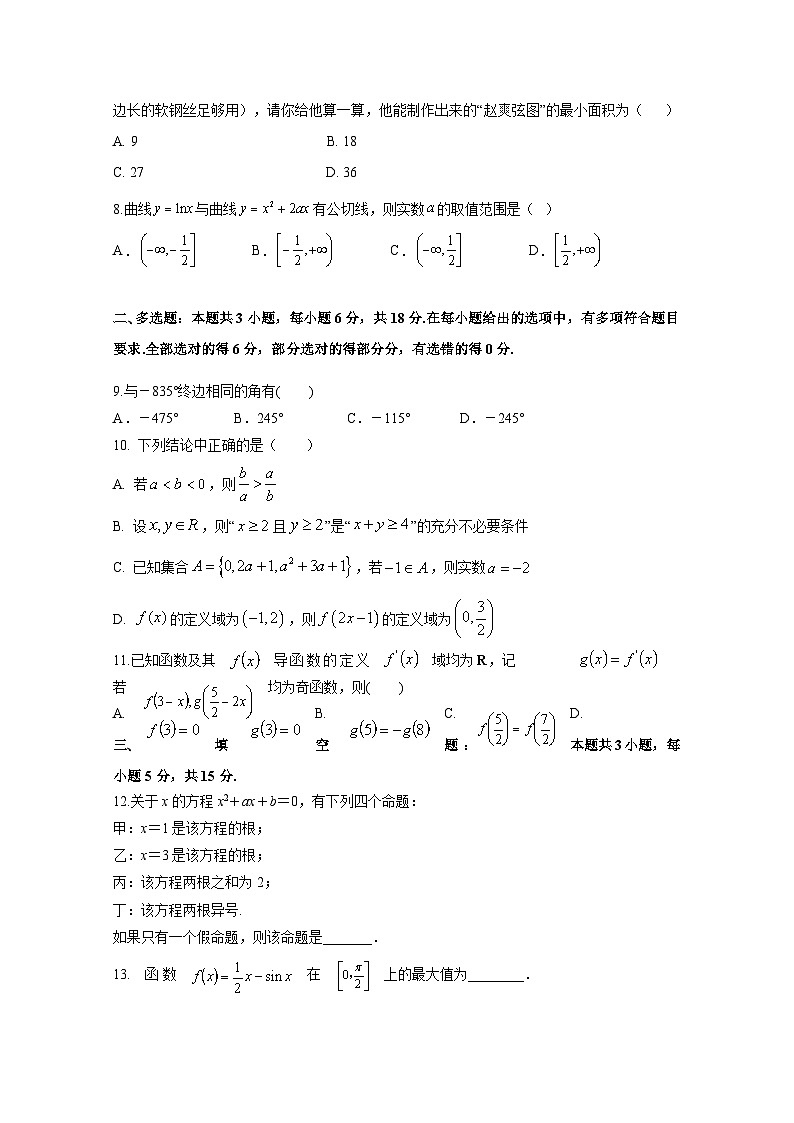 边长的软钢丝足够用），请你给他算一算，他能制作出来的“赵爽弦图”的最小面积为（　　）
A. 9　　B. 18
C. 27　　D. 36
8.曲线 y = lnx 与曲线 y = x² + 2ax 有公切线，则实数 a 的取值范围是（　）
A. (−∞, −1/2]　　B. [−1/2, +∞)　　C. (−∞, 1/2]　　D. [1/2, +∞)
二、多选题：本题共 3 小题，每小题 6 分，共 18 分.在每小题给出的选项中，有多项符合题目
要求.全部选对的得 6 分，部分选对的得部分分，有选错的得 0 分.
9.与－835°终边相同的角有(　　)
A.－475°　　B.245°　　C.－115°　　D.－245°
10. 下列结论中正确的是（　　）
A. 若 a < b < 0，则 b/a > a/b
B. 设 x, y ∈ R，则“ x ≥ 2 且 y ≥ 2 ”是“ x + y ≥ 4 ”的充分不必要条件
C. 已知集合 A = {0, 2a + 1, a² + 3a + 1}，若 −1 ∈ A，则实数 a = −2
D. f(x) 的定义域为 (−1, 2)，则 f(2x − 1) 的定义域为 (0, 3/2)
11.已知函数及其　f(x)　导函数的定义　f'(x)　域均为 R，记　g(x) = f'(x)
若　f(3 − x), g(5/2 − 2x)　均为奇函数，则(　　)
A.　f(3) = 0　　g(3) = 0　B.　g(5) = −g(8)　C.　f(5/2) = f(7/2)　D.
三、　填　空　题：　本题共 3 小题，每
小题 5 分，共 15 分.
12.关于 x 的方程 x²＋ax＋b＝0，有下列四个命题：
甲：x＝1 是该方程的根；
乙：x＝3 是该方程的根；
丙：该方程两根之和为 2；
丁：该方程两根异号.
如果只有一个假命题，则该命题是_______.
13.　函数　f(x) = 1/2 x − sin x　在　[0, π/2]　上的最大值为________.